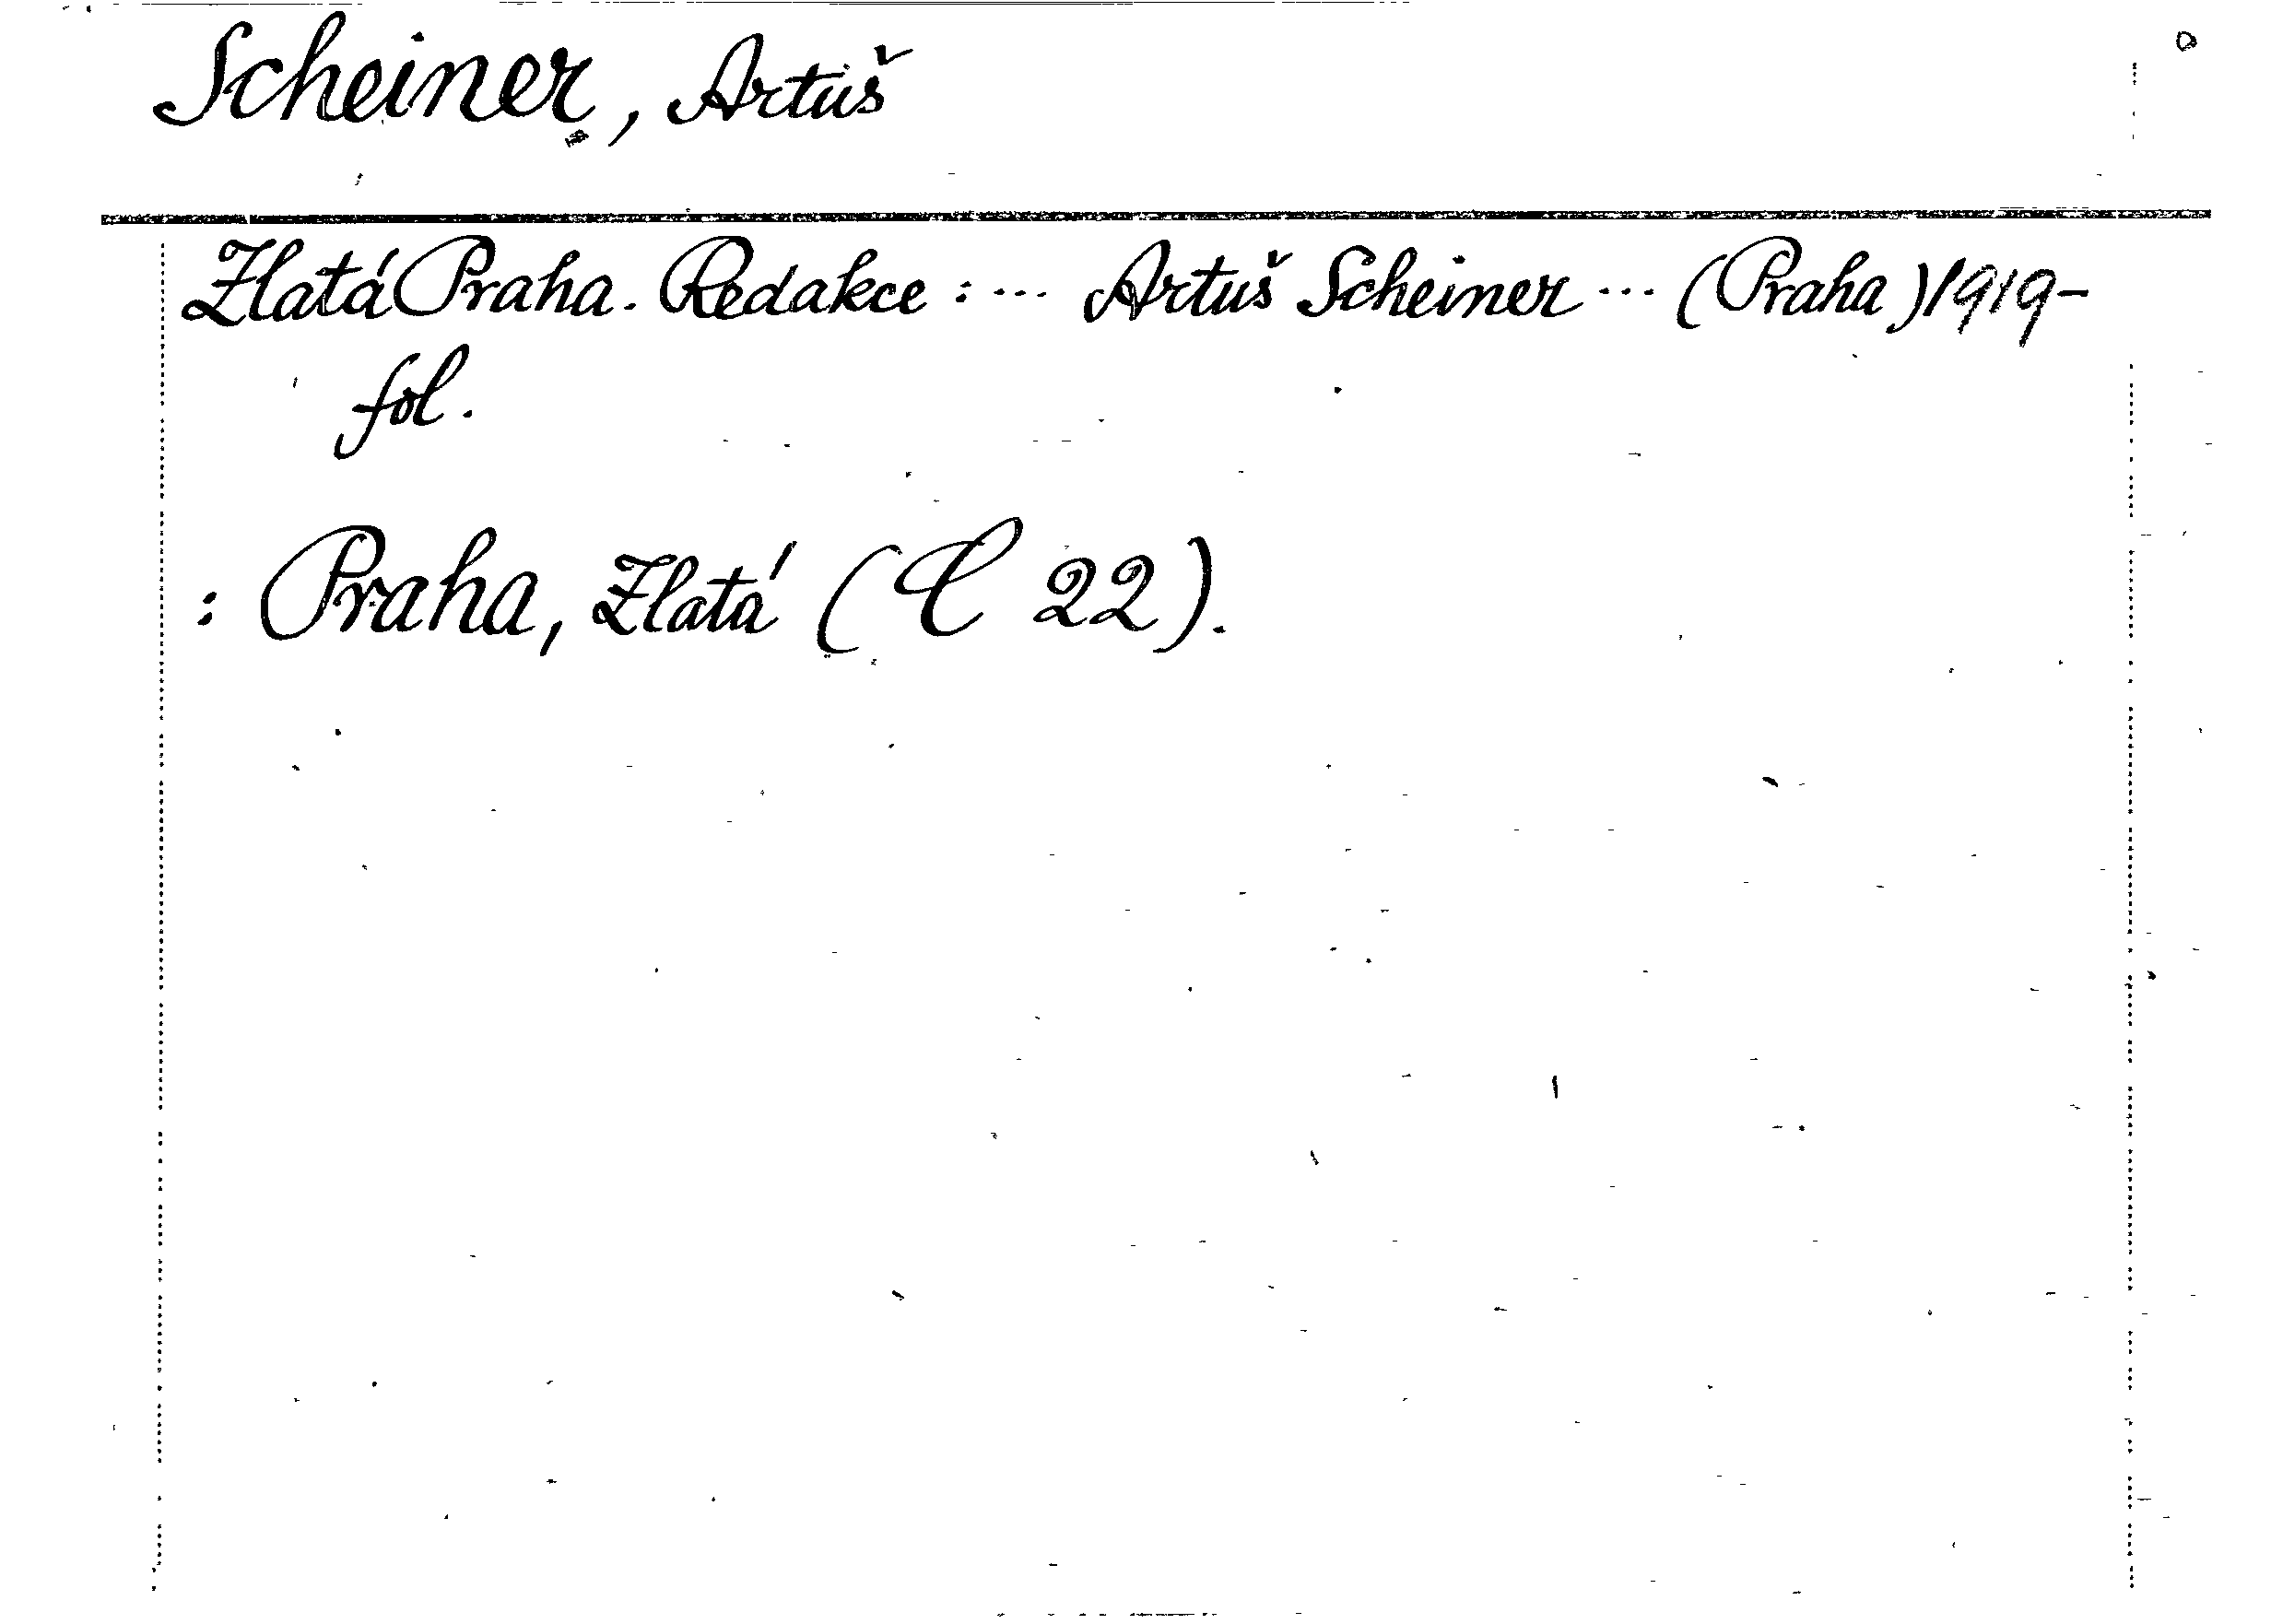 Scheiner, Artuš
Zlatá Praha. Redakce : ... Artuš Scheiner ... (Praha) 1919-
fol.
: Praha, Zlatá (C 22).